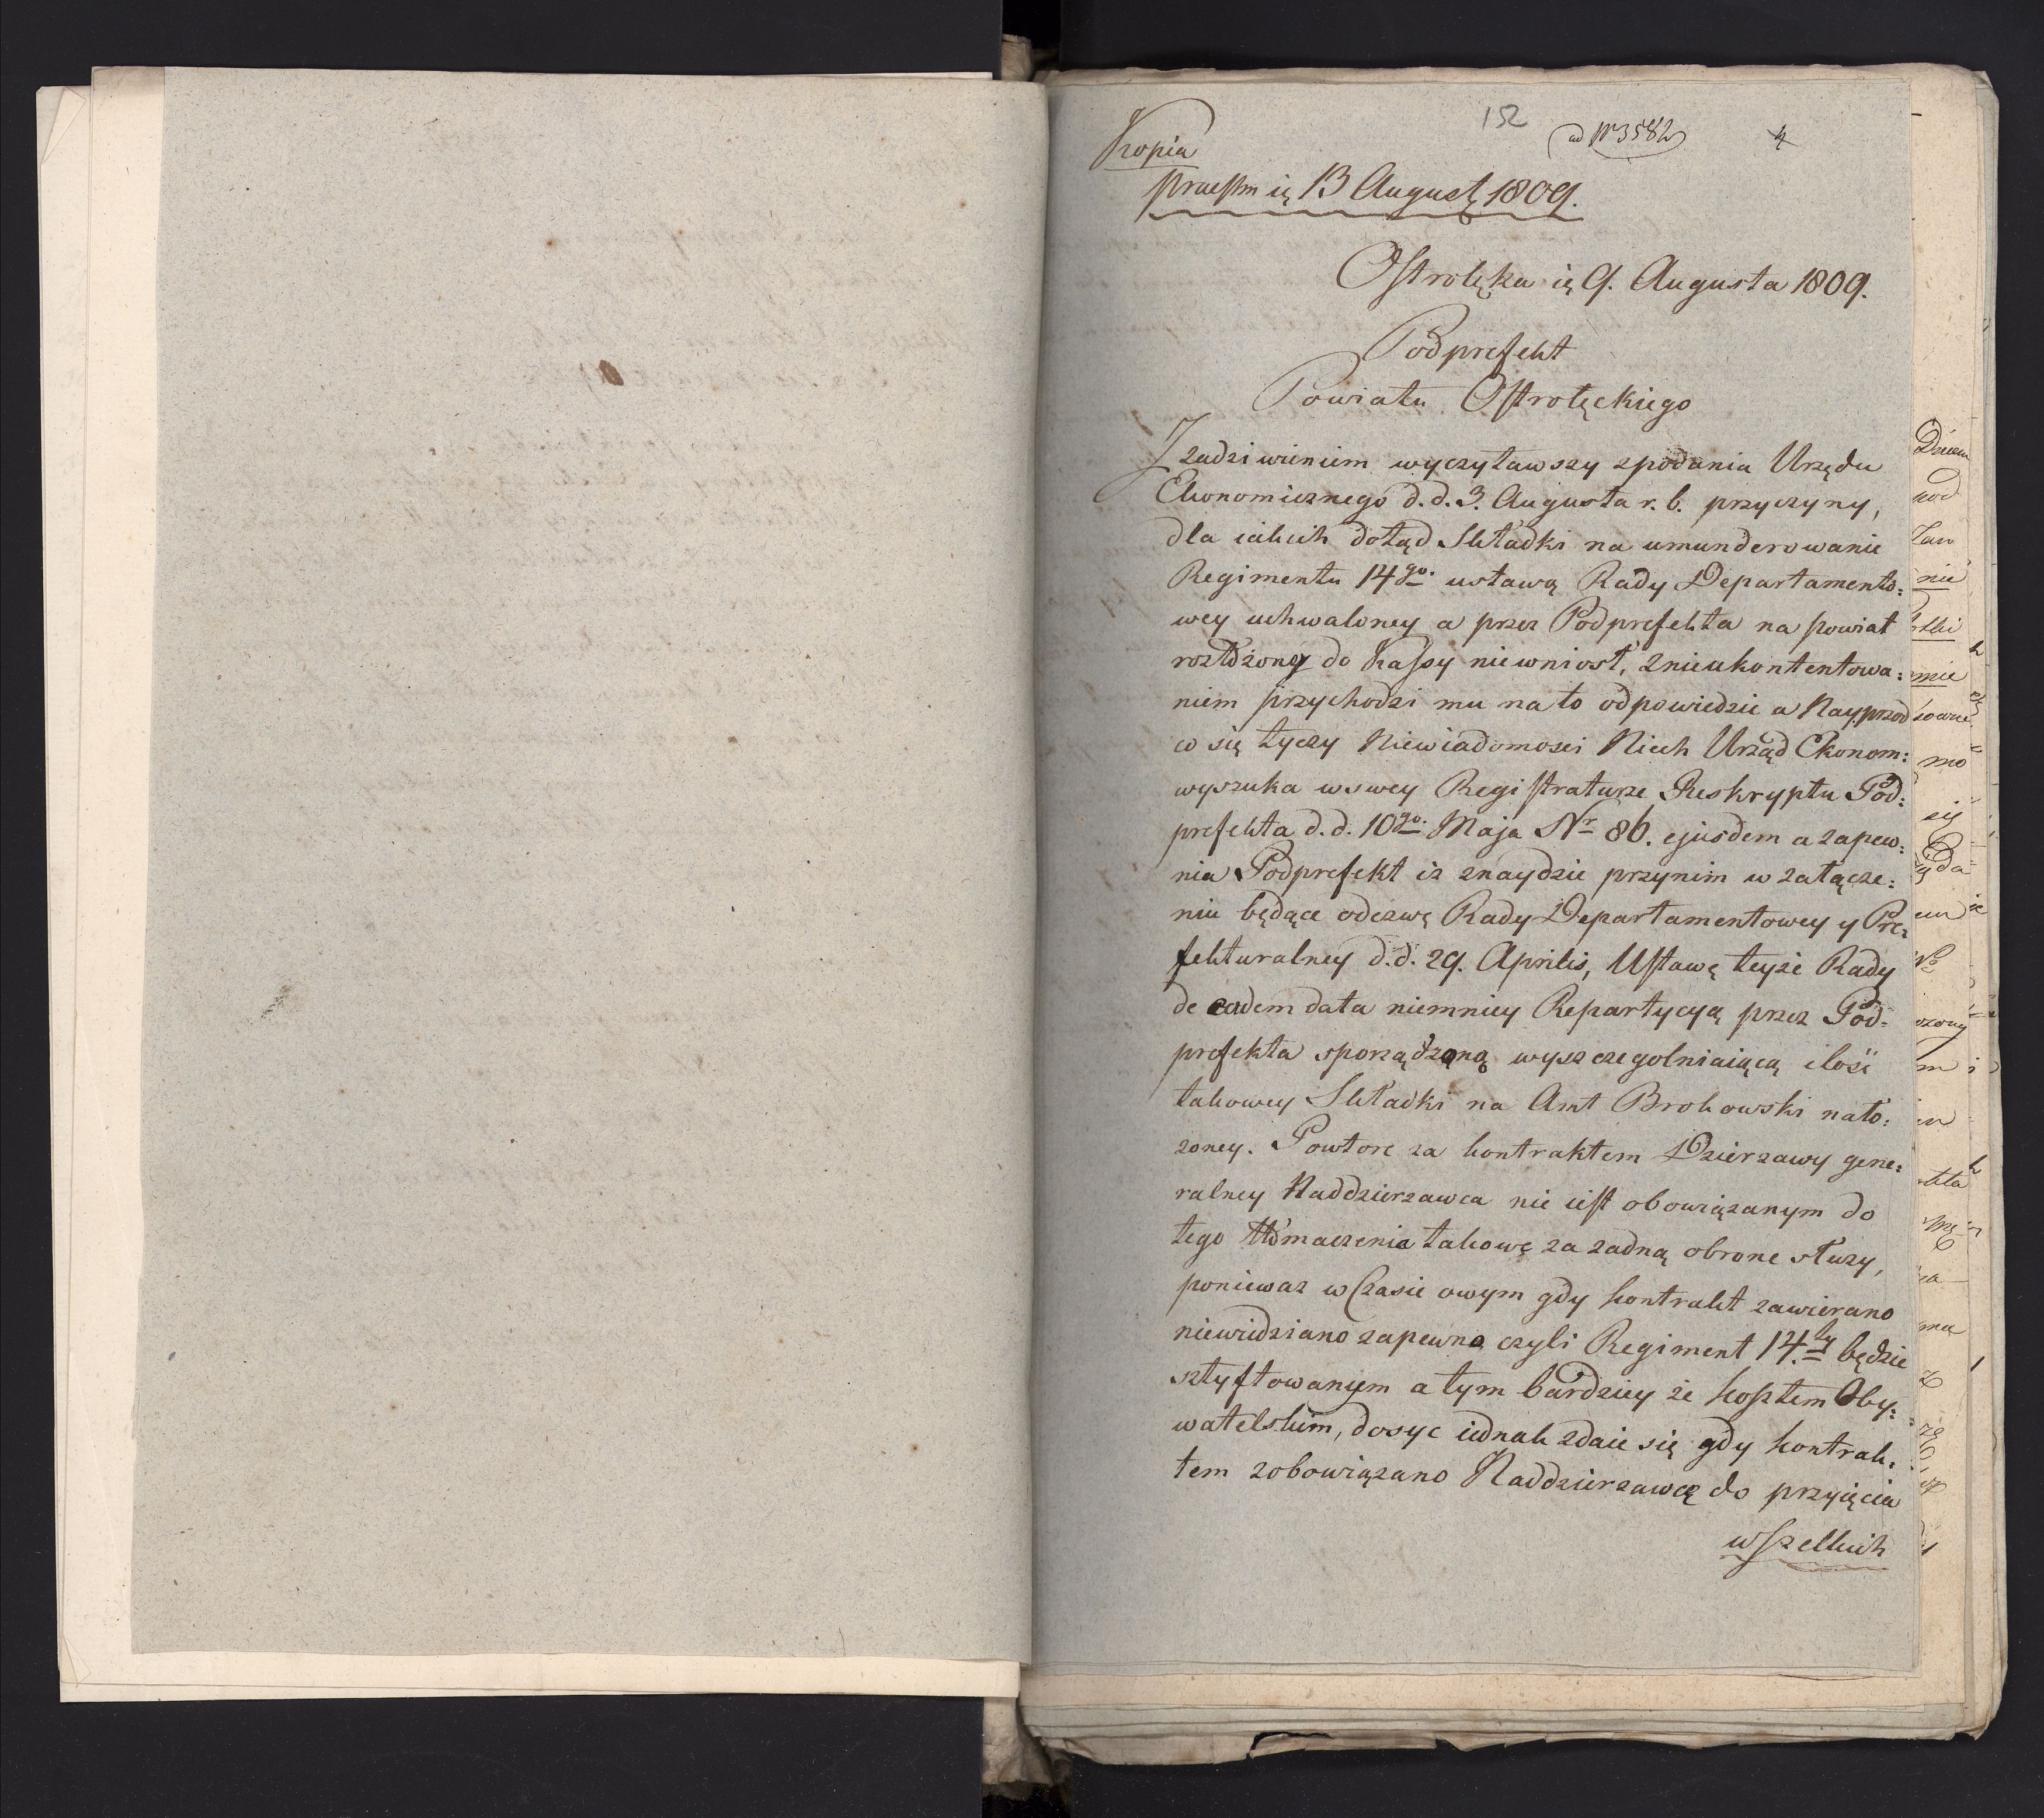 152
ad Nr 3582
4
Kopia
praesm ię 13 Augusty 1809.
Ostrolęka ię 9. Augusta 1809.
Podprefekt
Powiatu Ostrolęckiego
Z zadziwieniem wyczytawszy zpodania Urzędu
Ekonomicznego d.d. 3. Augusta r. b. przyczyny,
dla iakich dotąd Składki na umunderowanie
Regimentu 14go. ustawą Rady Departamento:
wey uchwaloney a przez Podprefekta na powiat
rozłożoney do Kassy niewniosł, znieukontentowa:
niem przychodzi mu na to odpowiedzie a Nayprzod
co się tyczy Niewiadomosci Niech Urząd Ekonom:
wyszuka wswey Registraturze Reskryptu Pod:
prefekta d.d. 10go. Maja Nr 86. ejusdem a zapew:
nia Podprefekt iz znaydzie przynim w załącze:
niu będące odezwę Rady Departamentowey y Pre:
fekturalney d.d. 29. Aprilis, Ustawę teyże Rady
de eadem data niemniey Repartycyą przez Pod:
prefekta sporządzoną wyszczegolniaiącą ilość
takowey Składki na Amt Brokowski nało:
zoney. Powtore za kontraktem Dzierzawy gene:
ralney Naddzierzawca nie iest obowiązanym do
tego tłómaczenia takowe za zadną obrone słuzy,
poniewaz w Czasie owym gdy kontrakt zawierano
niewidziano zapewne czyli Regiment 14.ty będzie
sztyftowanym a tym bardziey że kosztem Oby:
watelskim, dosyc iednak zdaie się gdy kontrak:
tem zobowiązano Naddzierzawcę do przyięcia
wszelkich